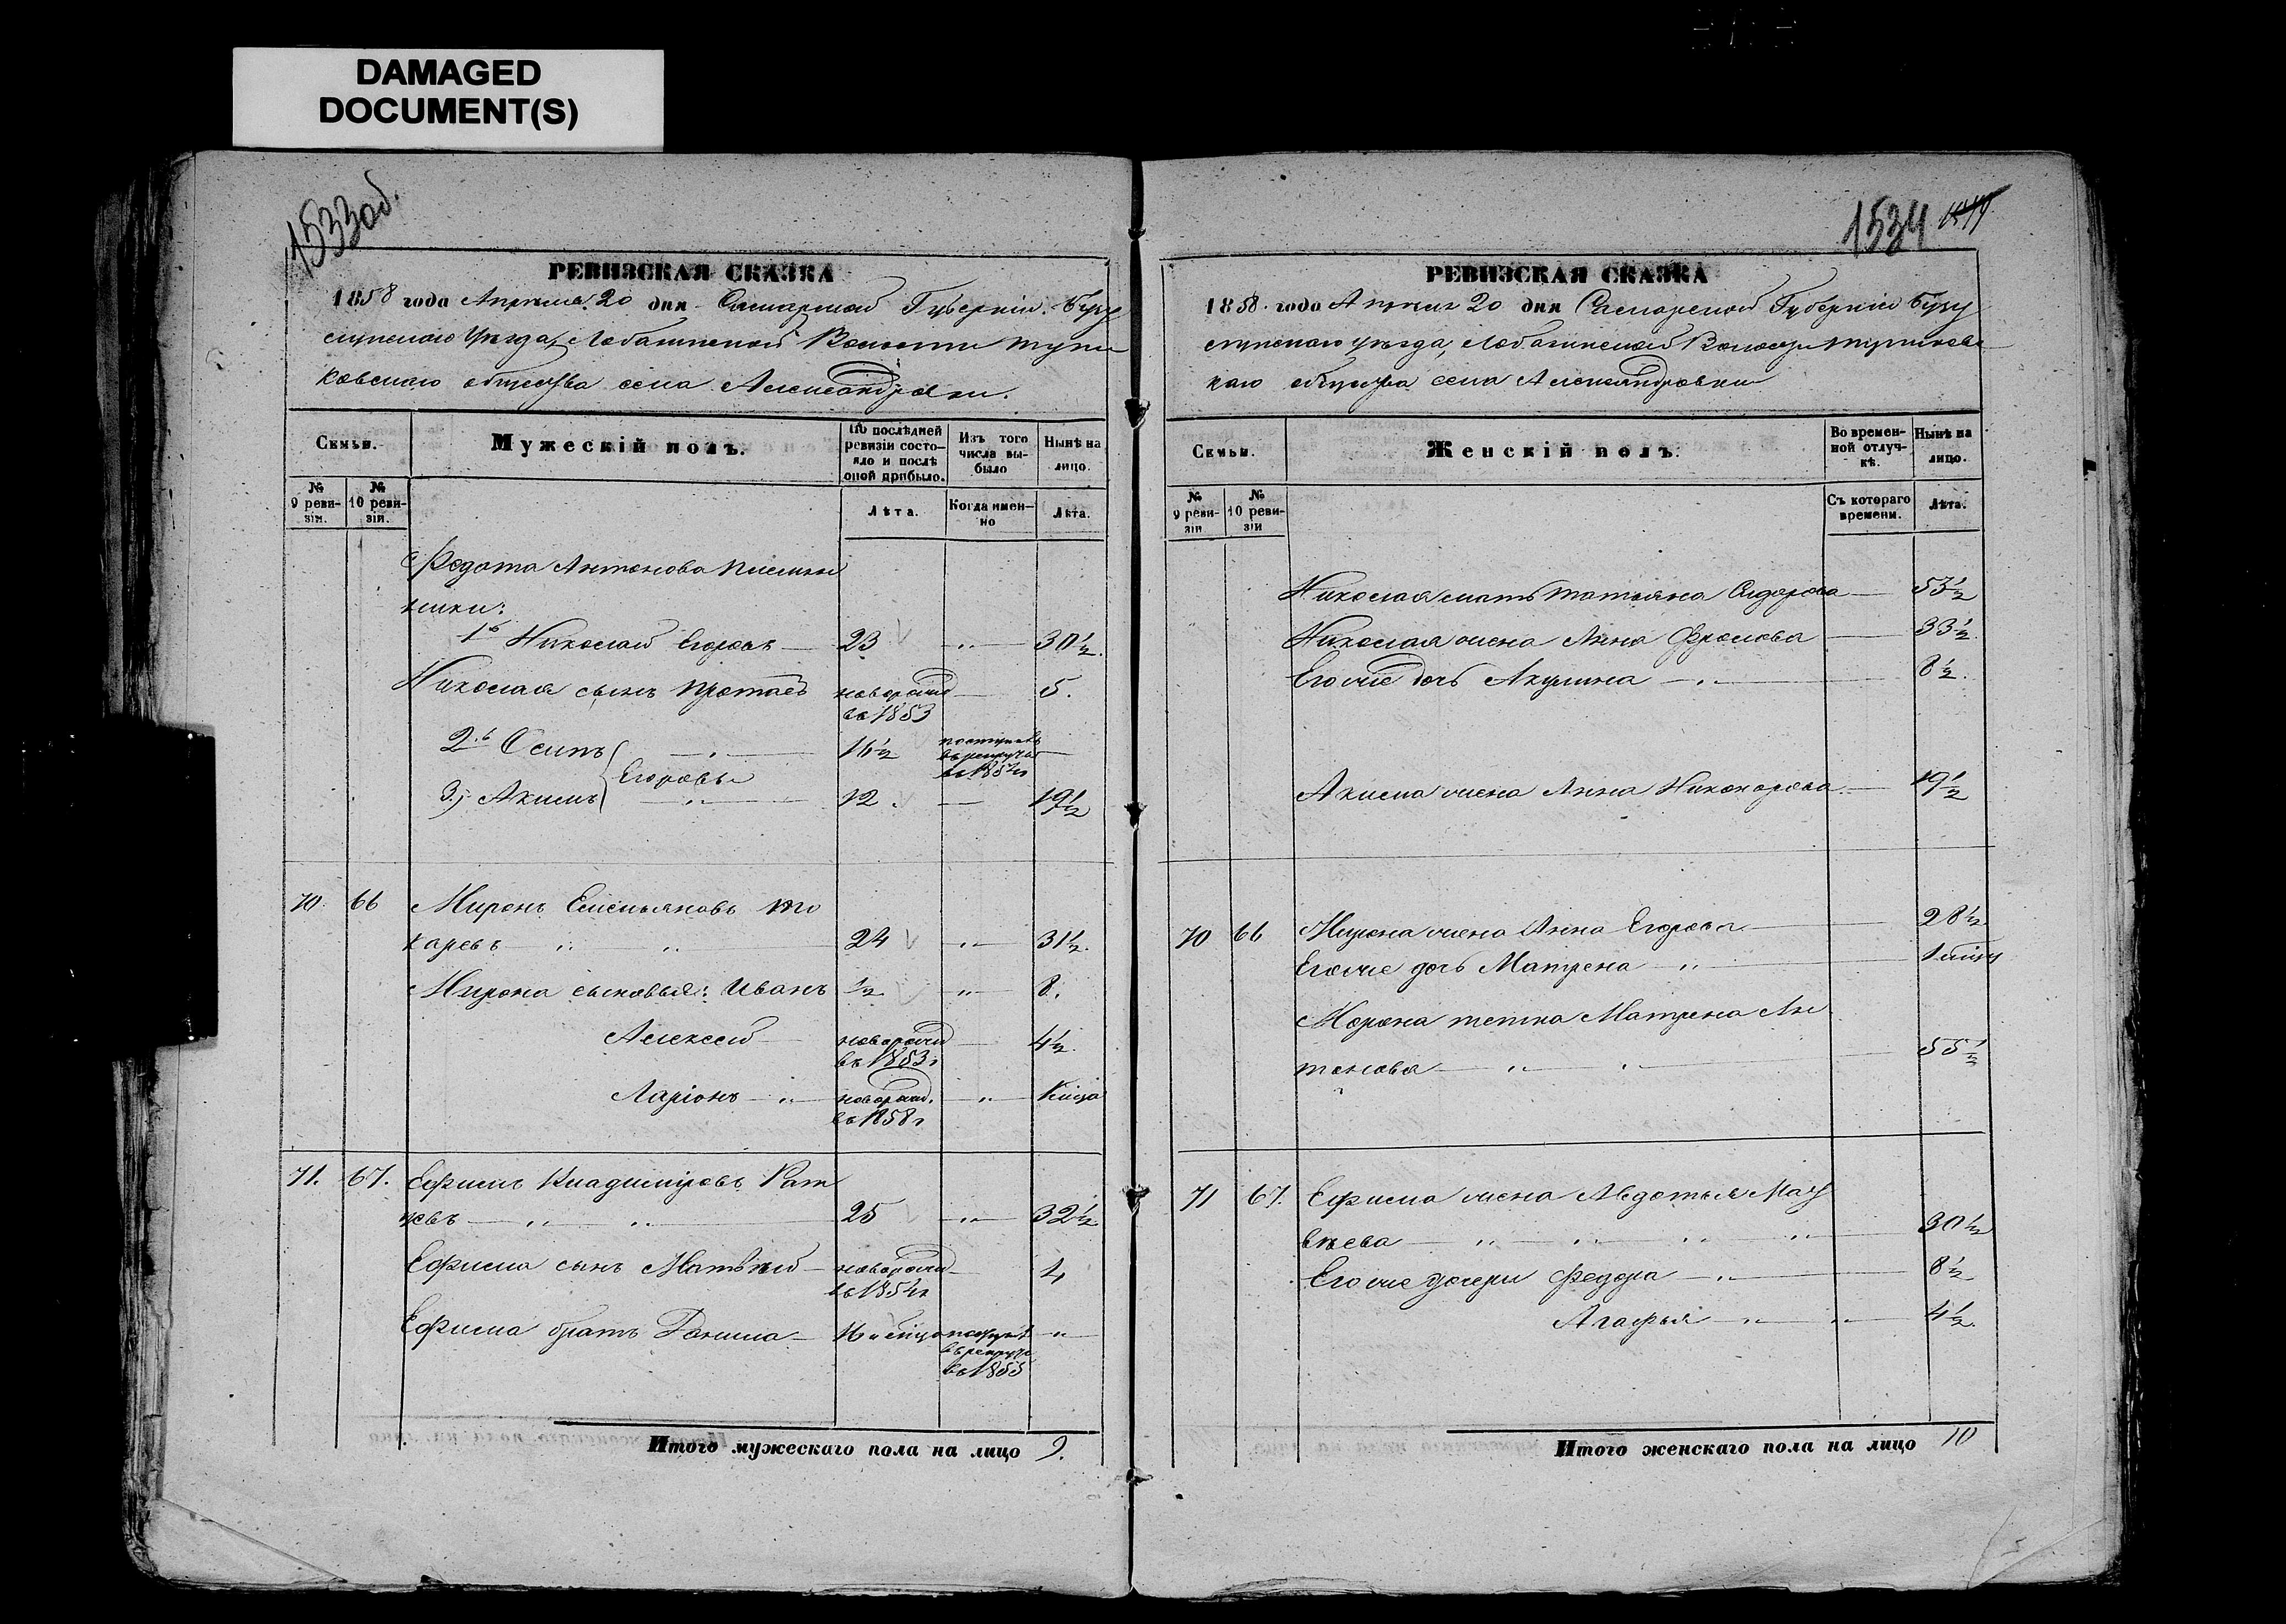 DAMAGED
DOCUMENT(S)
1533об.
РЕВИЗСКАЯ СКАЗКА
1858 года Апреля 20 дня Самарской Губерніи Бузу
лукскаго Уезда, Лобазинской Волости
ковскаго общества села Александровки.
Семьи.
Мужескій полъ.
По послѣдней ревизіи состояло и послѣ оной прибыло.
Изъ того числа выбыло
Нынѣ на лицо.
№ 9 ревизіи.
№ 10 ревизіи.
Лѣта.
Когда именно
Лѣта.
Федота Антонова племян
ники:
1й Николай Егоровъ 23 30½.
Николая сынъ новорожд 5.
въ 1853
2й Осипъ 16½ поступилъ
въ рекруты
въ 1854г
Егоровы
3.) Акимъ 12. 19½
70. 66 Миронъ Емельяновъ То
каревъ 24 31½.
Мирона сыновья: Иванъ ½ 8.
Алексей новорожд 4½.
въ 1853г
Ларіонъ новорожд.
въ 1858г
71. 67. Ефимъ Владиміровъ Рат
ковъ 25 32½
Ефима сынъ Матвѣй новорожд 4
въ 1854г
Ефима братъ Данила 16
въ рекруты
въ 1855
Итого мужескаго пола на лицо 9.
1534
РЕВИЗСКАЯ СКАЗКА
1858. года Апреля 20 дня Самарской Губерніи Бузу
лукскаго уезда, Лобазинской Волости
каго общества села Александровки
Семьи.
Женскій полъ.
Во временной отлучкѣ.
Нынѣ на лицо.
№ 9 ревизіи
№ 10 ревизіи
Съ котораго времени.
Лѣта.
Николая мать Татьяна Сидорова 53½
Николая жена Анна Фролова 33½.
Его же дочь Акулина 8½.
Акима жена Анна Никонорова 19½
70 66 Мирона жена Анна Егорова 28½
Его же дочь Матрена
Мирона тетка Матрена Ан
тонова 55½
71 67. Ефима жена Авдотья Мат
вѣева 30½
Его же дочери Федора 8½
Агафья 4½.
Итого женскаго пола на лицо 10